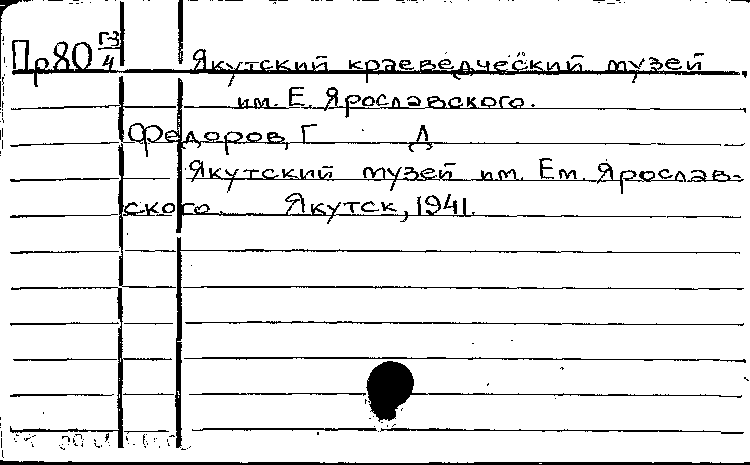 Пр80 Г3/4 Якутский краеведческий музей
им. Е. Ярославского.
Федоров, Г Д
Якутский музей им. Ем. Ярослав-
ского Якутск, 1941.